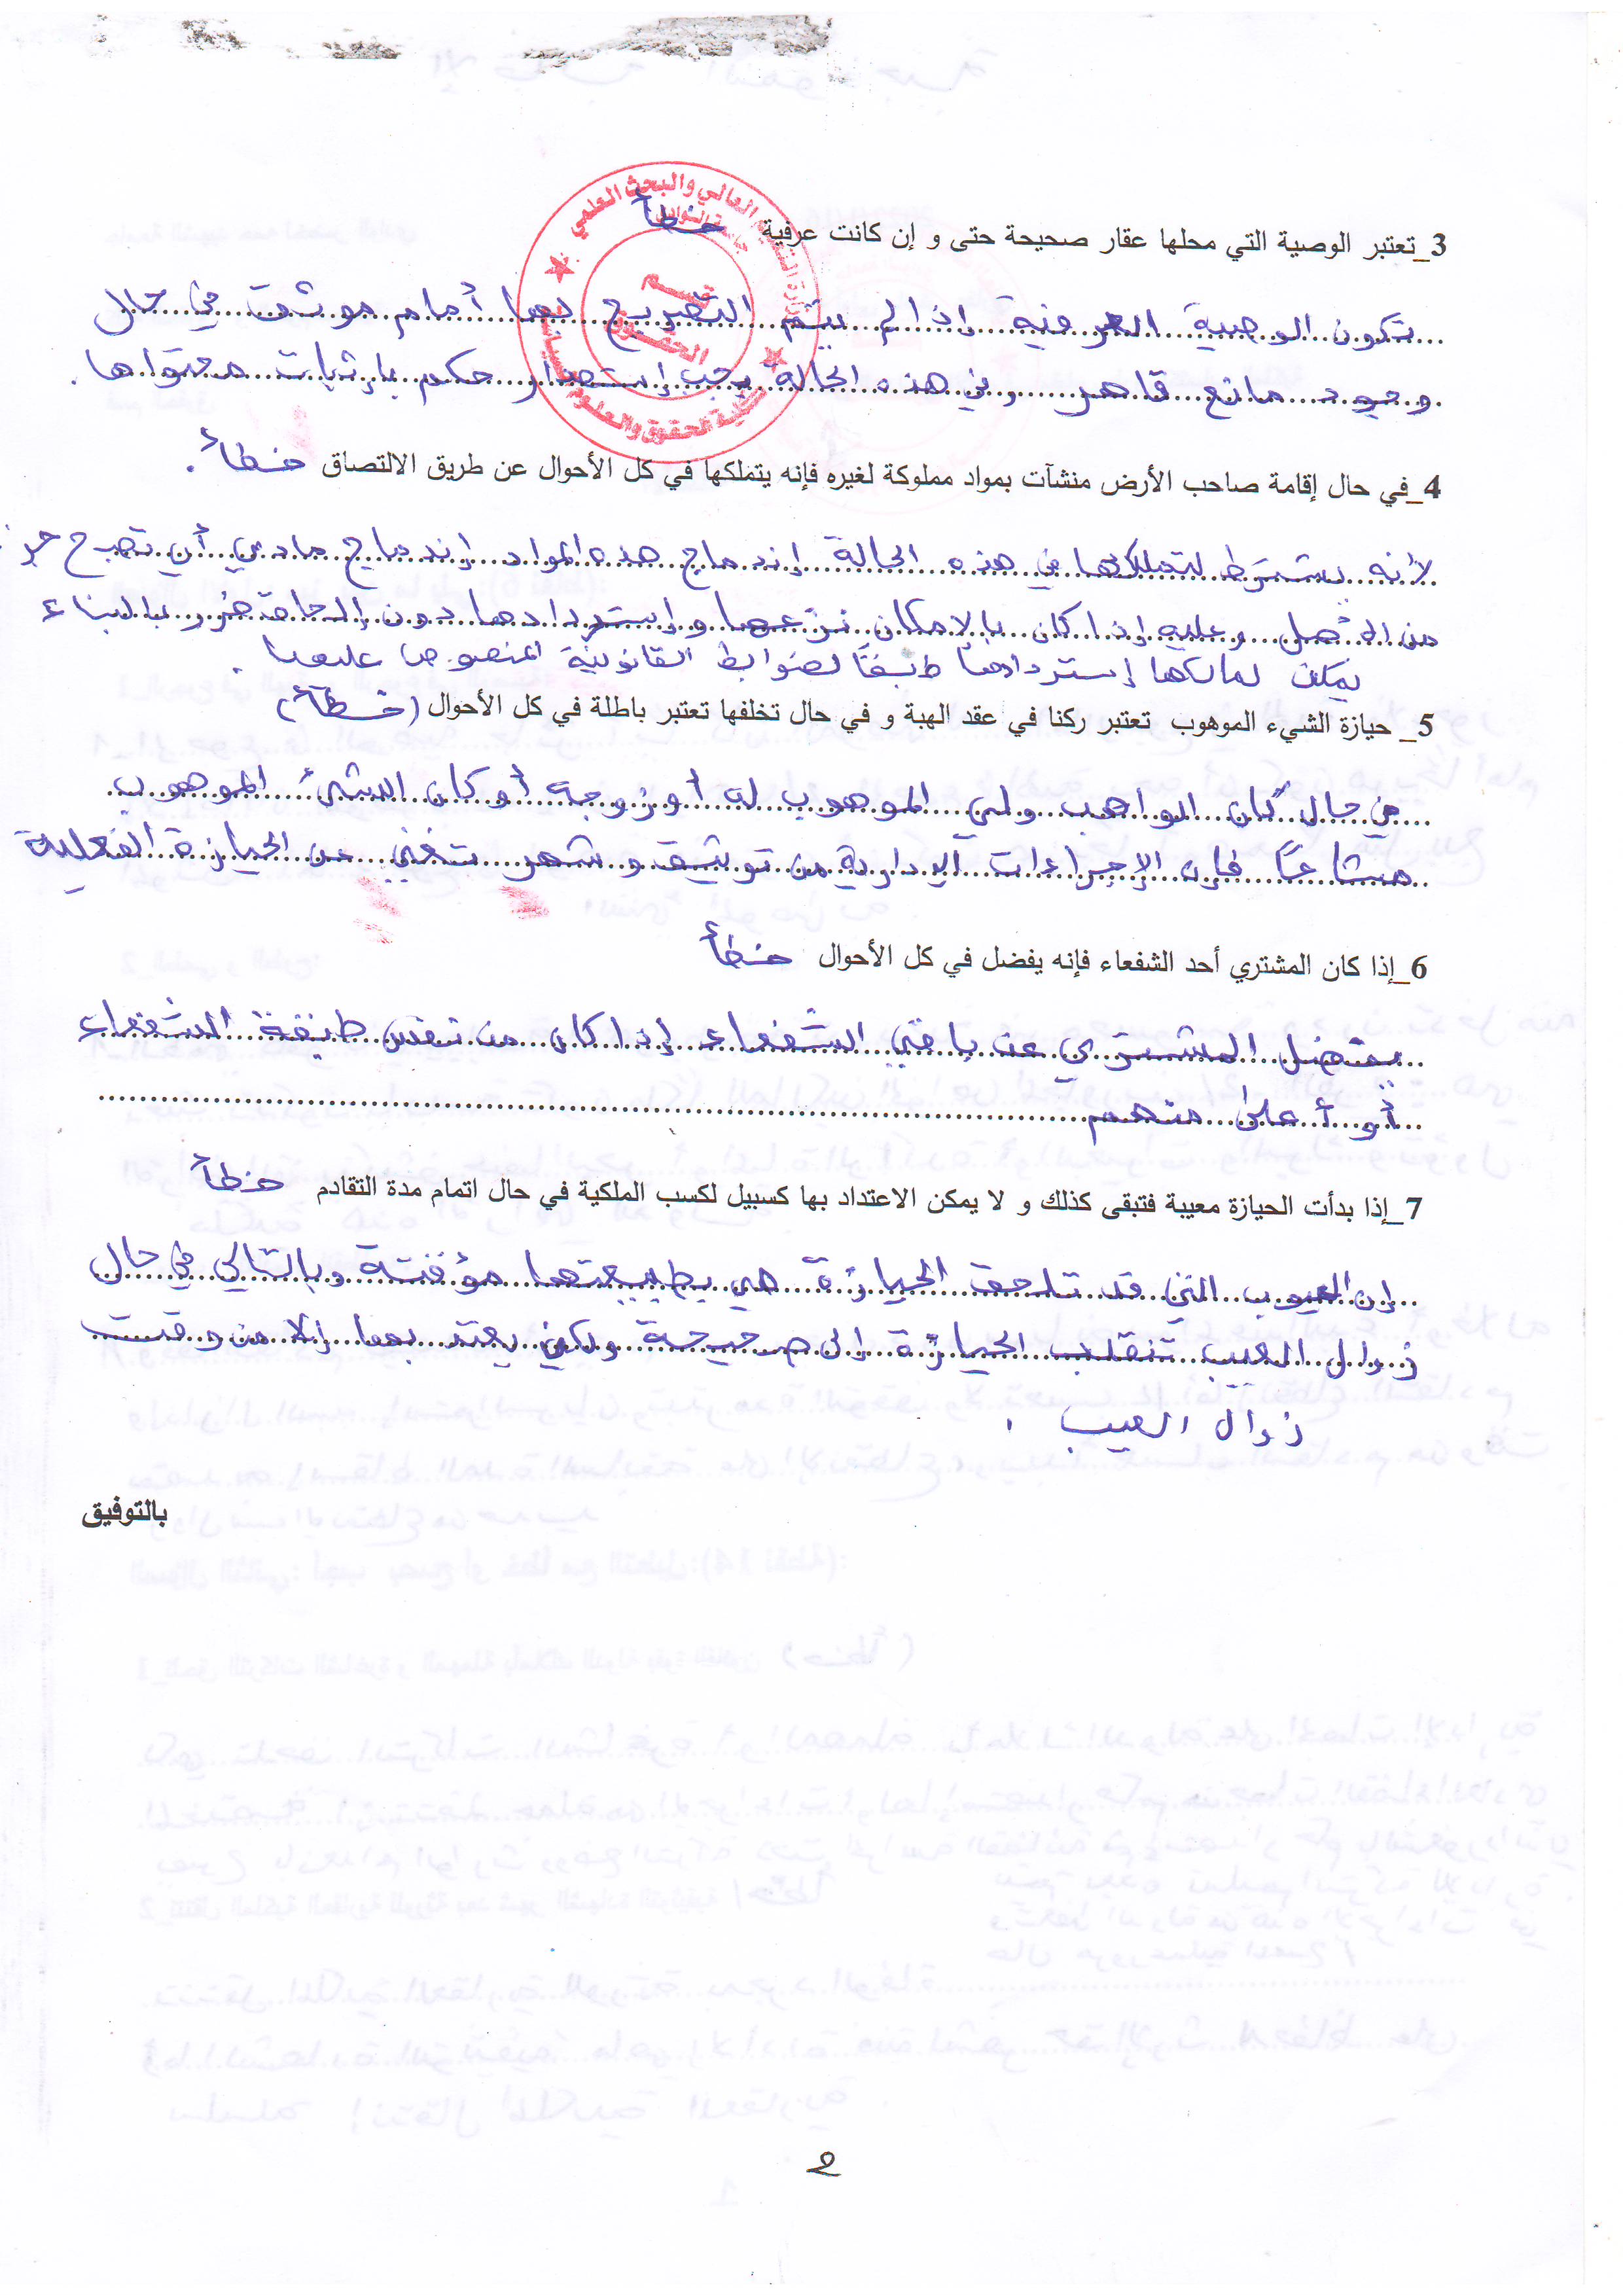 3_تعتبر الوصية التي محلها عقار صحيحة حتى و إن كانت عرفية خطأ
تكون الوصية العرفية إذا لم يتم التصريح بها أمام موثق في حال
وجود مانع قاهر وفي هذه الحالة يجب إستصدار حكم بإثبات محتواها.
4_في حال إقامة صاحب الأرض منشآت بمواد مملوكة لغيره فإنه يتملكها في كل الأحوال عن طريق الالتصاق خطأ.
لأنه يشترط لتملكها في هذه الحالة إندماج هذه المواد إندماج مادي أن تصبح جزء
من الأصل وعليه إذا كان بالإمكان نزعها وإستردادها دون إلحاق ضرر بالبناء
يمكن لمالكها إستردادها طبقا لضوابط القانونية المنصوص عليها.
5_ حيازة الشيء الموهوب تعتبر ركنا في عقد الهبة و في حال تخلفها تعتبر باطلة في كل الأحوال (خطأ)
في حال كان الواهب ولي الموهوب له أو زوجه أو كان الشئ الموهوب
مشاعًا فإن الإجراءات الإدارية من توثيق و شهر تغني عن الحيازة الفعلية
6_إذا كان المشتري أحد الشفعاء فإنه يفضل في كل الأحوال خطأ
يفضل المشتري عن باقي الشفعاء إذا كان من نفس طبقة الشفعاء
أو أعلى منهم
7_إذا بدأت الحيازة معيبة فتبقى كذلك و لا يمكن الاعتداد بها كسبيل لكسب الملكية في حال اتمام مدة التقادم خطأ
إن العيوب التي قد تلحق الحيازة هي بطبيعتها مؤقتة وبالتالي في حال
زوال العيب تنقلب الحيازة إلى صحيحة ولكن يعتد بها إلا من وقت
زوال العيب.
بالتوفيق
وزارة التعليم العالي والبحث العلمي
قسم
الحقوق
كلية الحقوق والعلوم السياسية
2